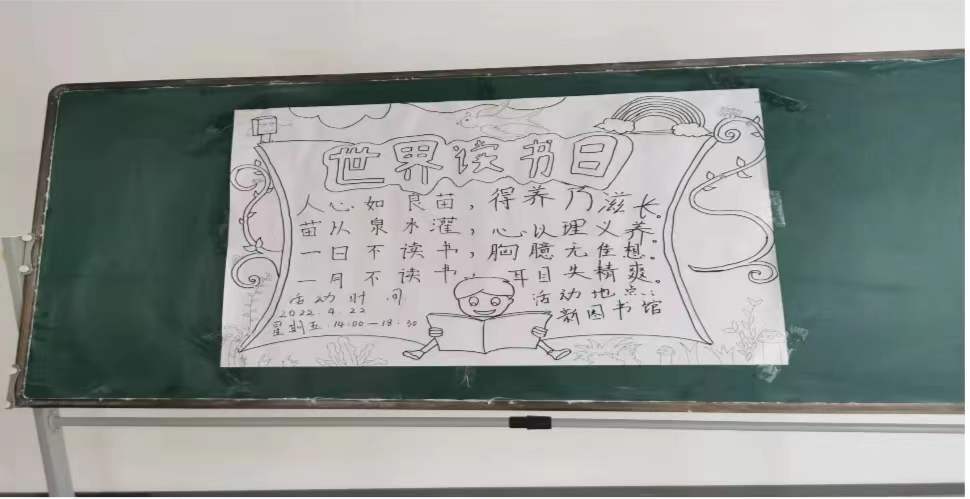 世界读书日
人心如良苗，得养乃滋长。
苗从泉水灌，心以理义养。
一日不读书，胸臆无佳想。
一月不读书，耳目失精爽。
活动时间
2022.4.22
星期五 14:00—18:30
活动地点：
新图书馆